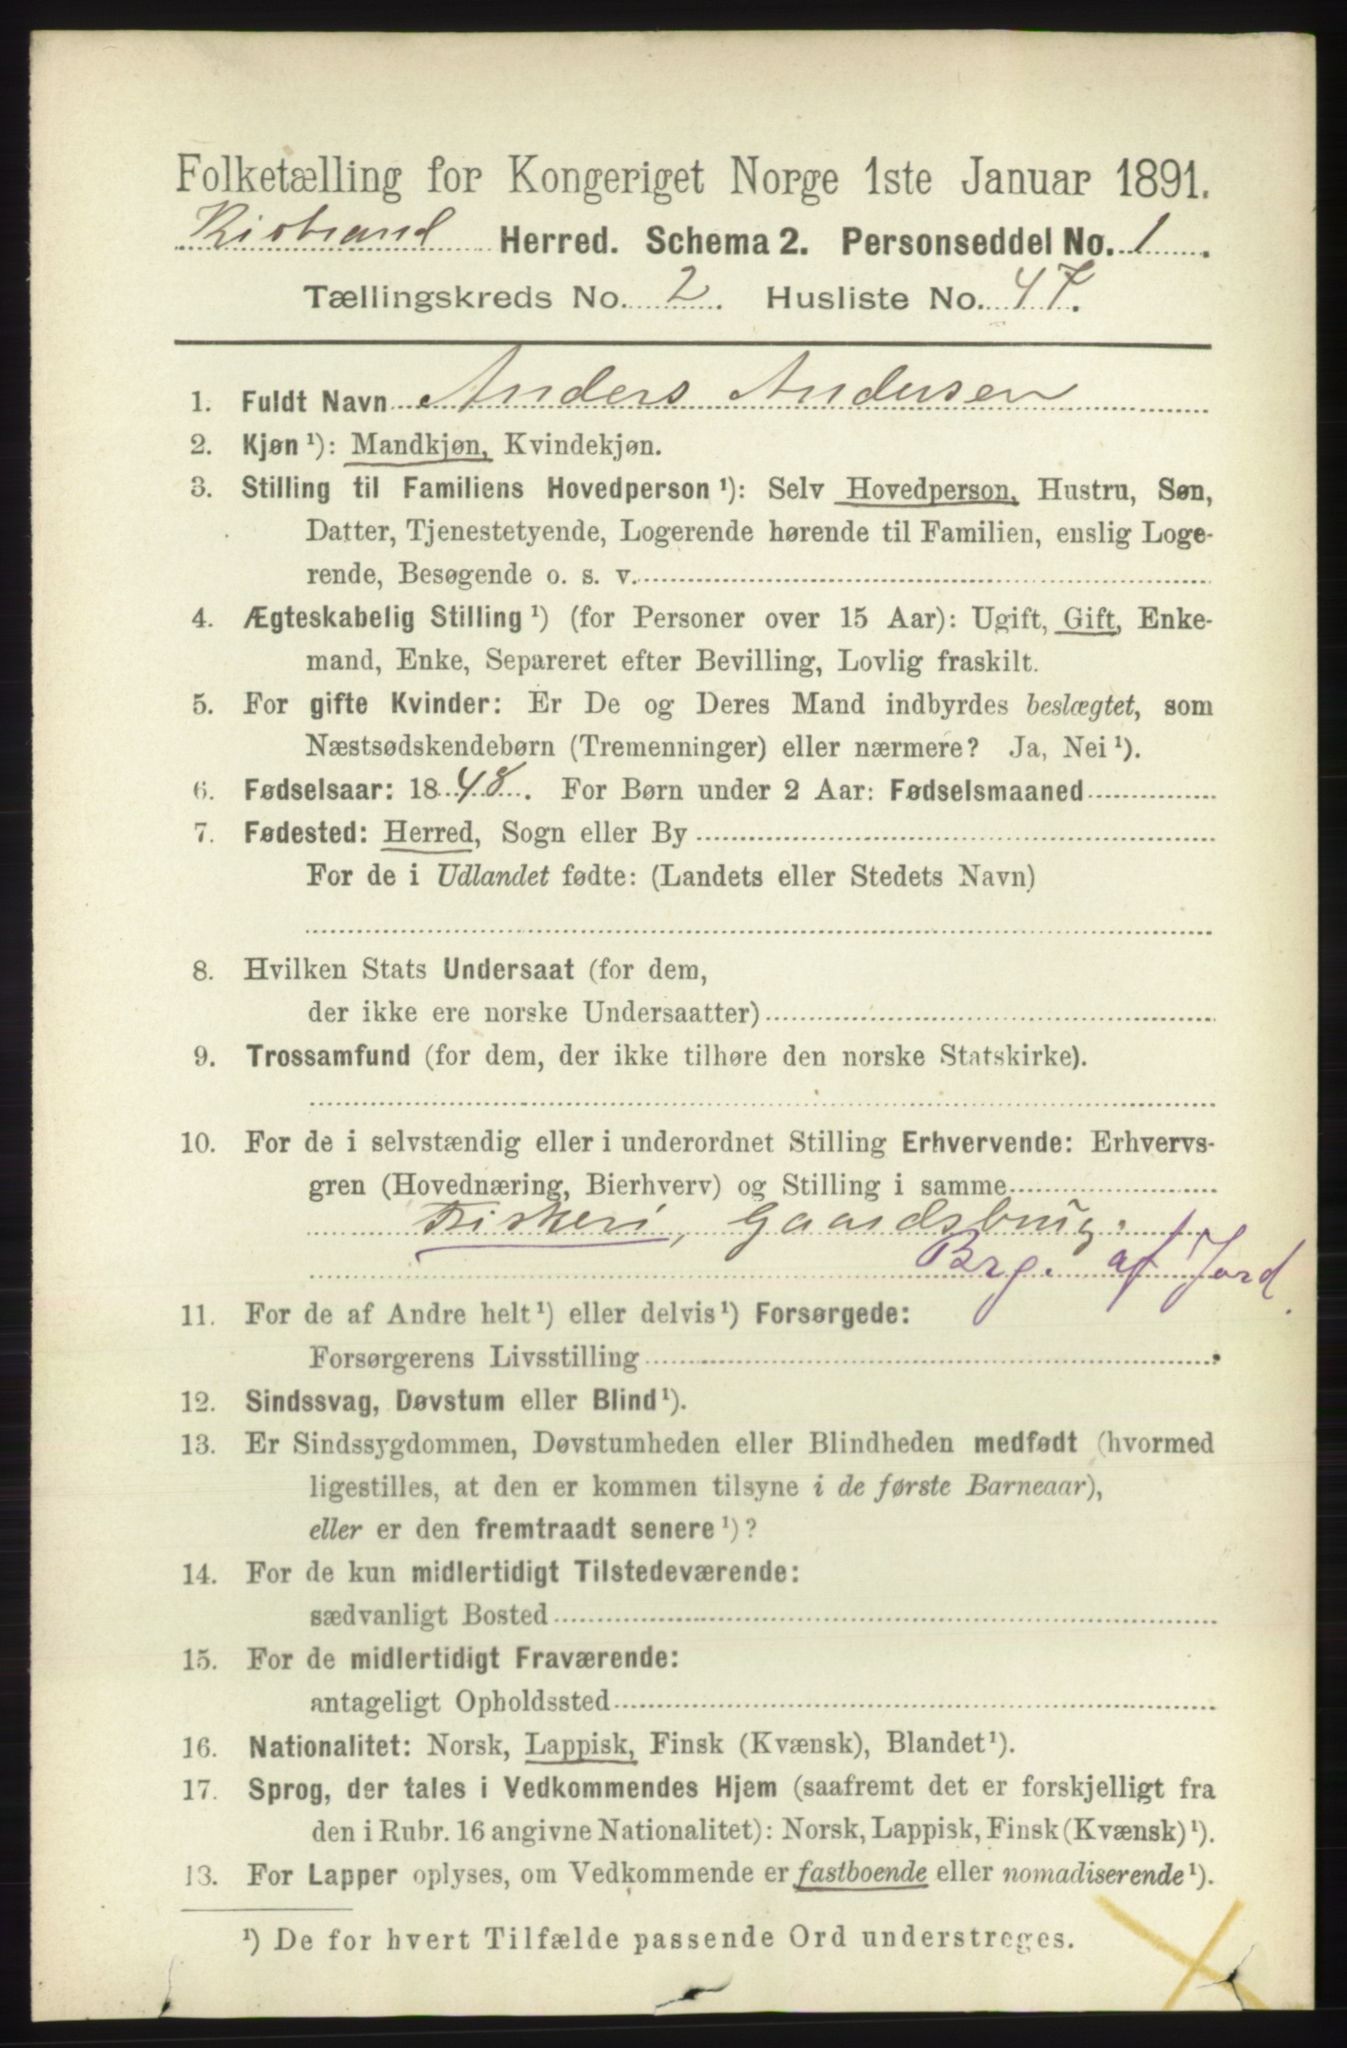 Folketælling for Kongeriget Norge 1ste Januar 1891.
Kistrand Herred. Schema 2. Personseddel No. 1.
Tællingskreds No. 2. Husliste No. 47.
1. Fuldt Navn Anders Andersen
2. Kjøn¹): Mandkjøn, Kvindekjøn.
3. Stilling til Familiens Hovedperson¹): Selv Hovedperson, Hustru, Søn,
Datter, Tjenestetyende, Logerende hørende til Familien, enslig Loge-
rende, Besøgende o. s. v.
4. Ægteskabelig Stilling¹) (for Personer over 15 Aar): Ugift, Gift, Enke-
mand, Enke, Separeret efter Bevilling, Lovlig fraskilt.
5. For gifte Kvinder: Er De og Deres Mand indbyrdes beslægtet, som
Næstsødskendebørn (Tremenninger) eller nærmere? Ja, Nei¹).
6. Fødselsaar: 1848. For Børn under 2 Aar: Fødselsmaaned
7. Fødested: Herred, Sogn eller By
For de i Udlandet fødte: (Landets eller Stedets Navn)
8. Hvilken Stats Undersaat (for dem,
der ikke ere norske Undersaatter)
9. Trossamfund (for dem, der ikke tilhøre den norske Statskirke).
10. For de i selvstændig eller i underordnet Stilling Erhvervende: Erhvervs-
gren (Hovednæring, Bierhverv) og Stilling i samme
Fiskeri, Gaardsbrug.
Brg. af Jord.
11. For de af Andre helt¹) eller delvis¹) Forsørgede:
Forsørgerens Livsstilling
12. Sindssvag, Døvstum eller Blind¹).
13. Er Sindssygdommen, Døvstumheden eller Blindheden medfødt (hvormed
ligestilles, at den er kommen tilsyne i de første Barneaar),
eller er den fremtraadt senere¹)?
14. For de kun midlertidigt Tilstedeværende:
sædvanligt Bosted
15. For de midlertidigt Fraværende:
antageligt Opholdssted
16. Nationalitet: Norsk, Lappisk, Finsk (Kvænsk), Blandet¹).
17. Sprog, der tales i Vedkommendes Hjem (saafremt det er forskjelligt fra
den i Rubr. 16 angivne Nationalitet): Norsk, Lappisk, Finsk (Kvænsk)¹).
13. For Lapper oplyses, om Vedkommende er fastboende eller nomadiserende¹).
¹) De for hvert Tilfælde passende Ord understreges.